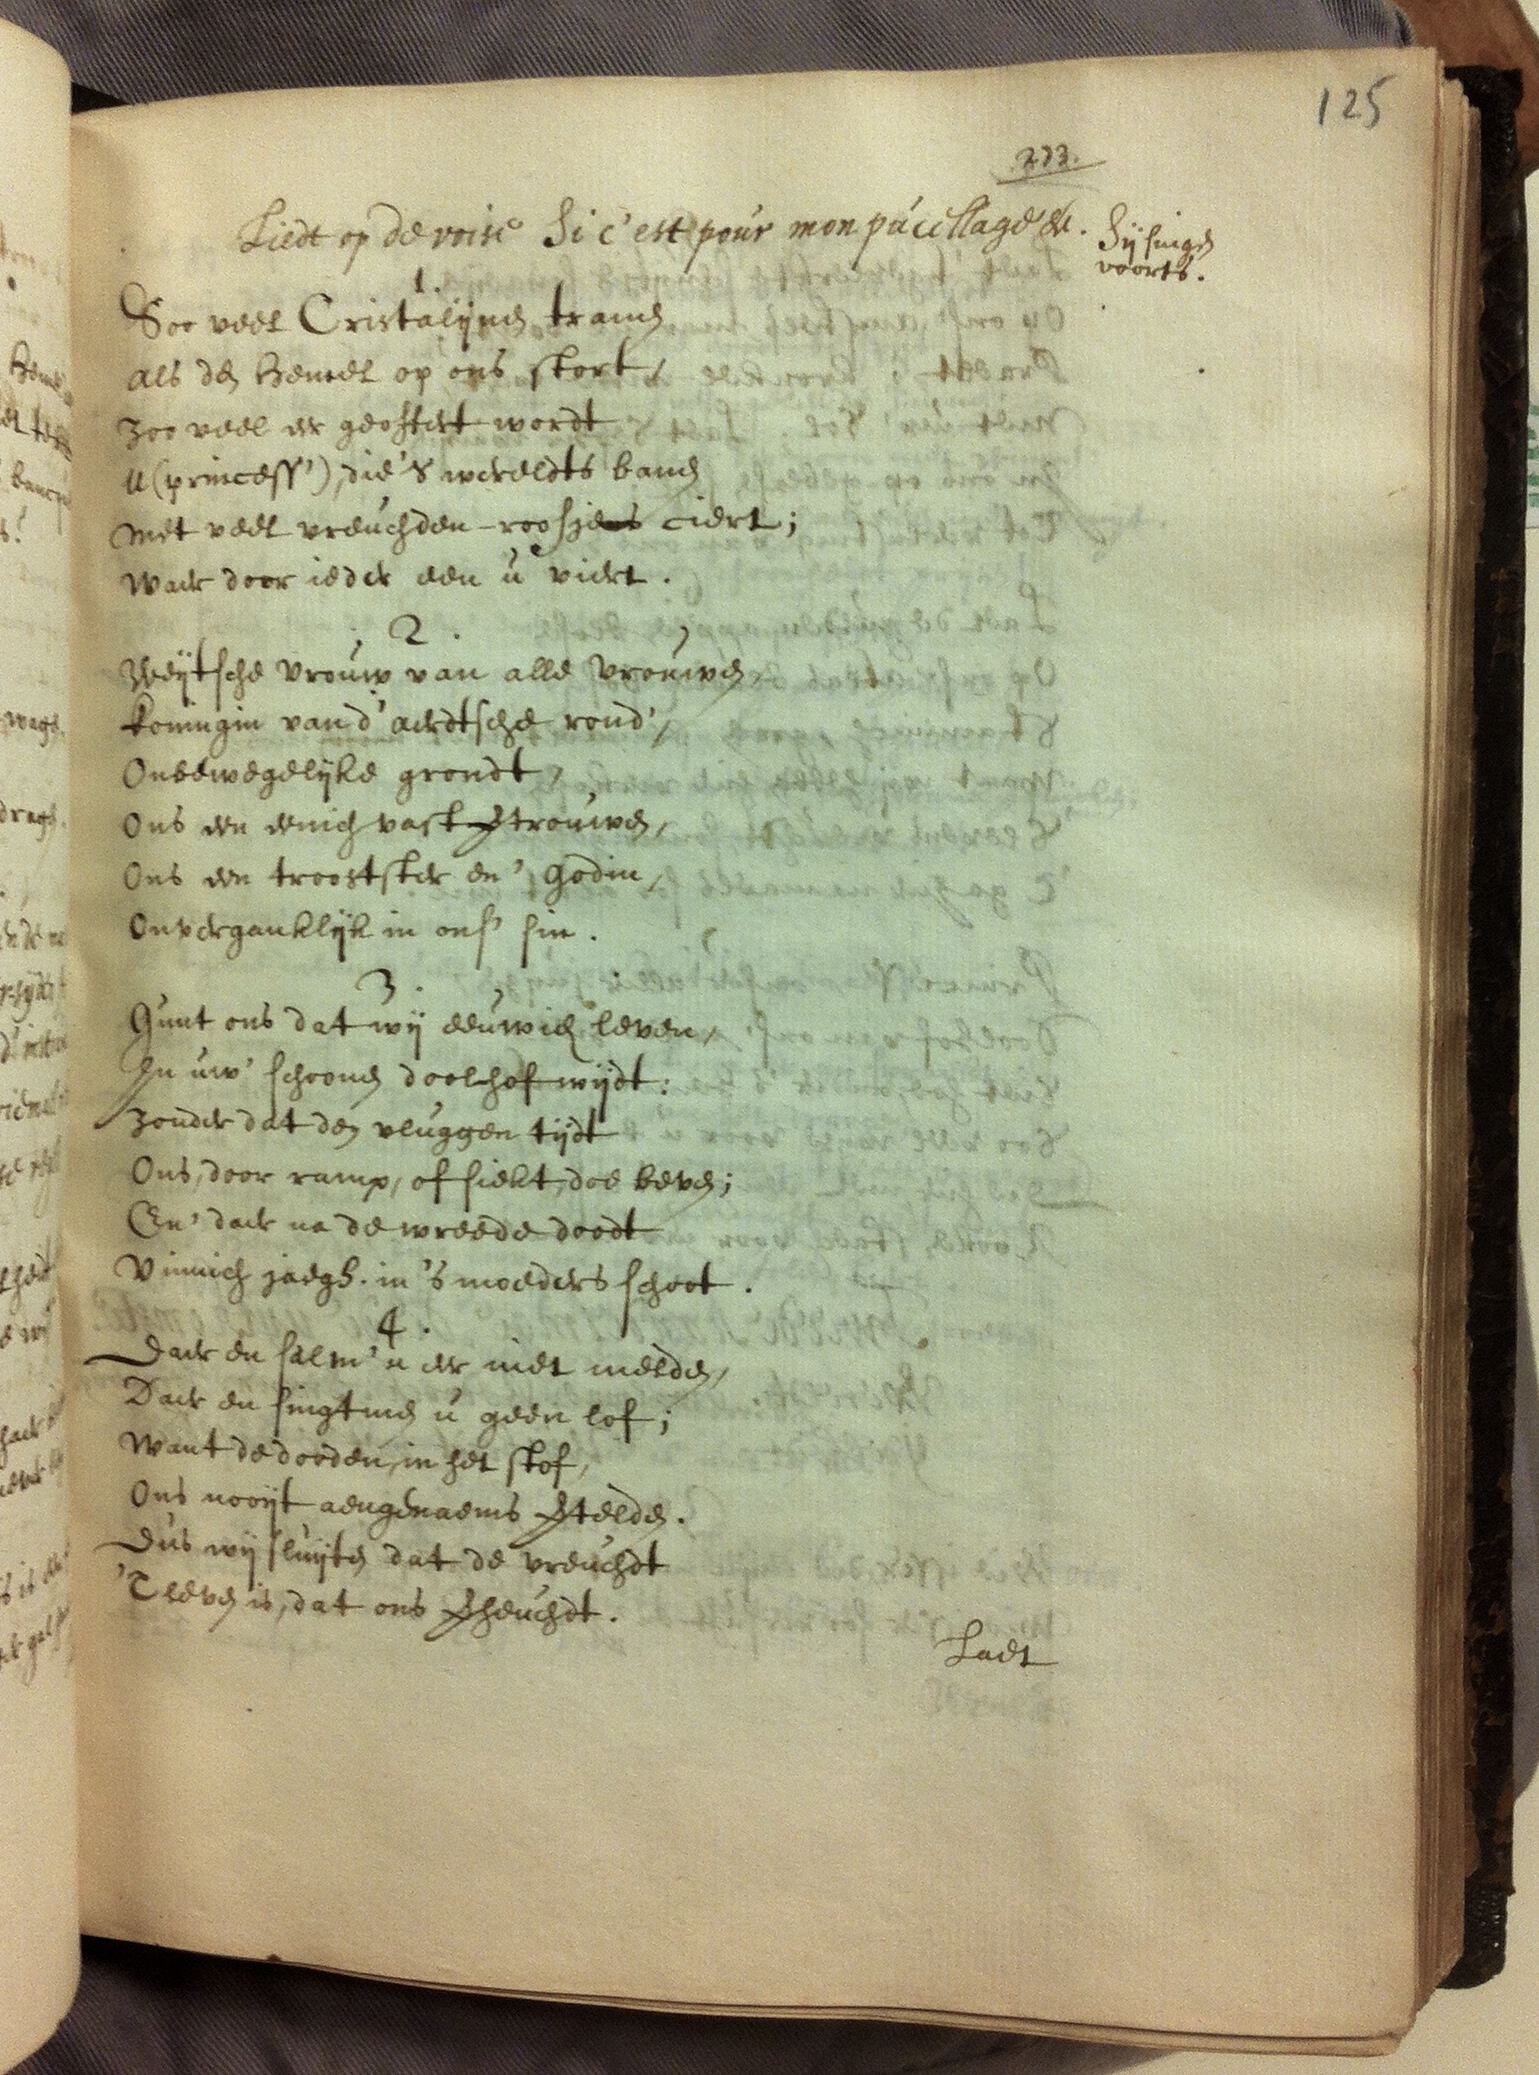 125
233.
Liedt op de voise Si c'est pour mon pucellage &c.
Sy singen
voorts.
1.
Soo veel Cristalynen tranen
als den Hemel op ons stort,
Zoo veel er geoffert wordt
U (princess'), die 's werelts banen
met veel vreuchden-roosjes ciert;
waer door ieder een u viert.
2.
Weytsche vrouw van alle vrouwen,
Koningin van d' aerdtsche rond',
Onbewegelyke grondt,
Ons een eenich vast vertrouwen,
Ons een troostster en' Godin,
Onvergancklyk in ons' sin.
3.
Gunt ons dat wy eeuwich leven,
In uw' schoonen doolhof wydt:
Zonder dat den vluggen tydt
Ons, door ramp, of siekt, doe beven;
En' daer na de wreede doodt
Vinnich jaegh in 's moeders schoot.
4.
Daer en sal m' u er niet melden,
Daer en singt men u geen lof;
want de dooden, in het stof,
Ons nooyt aengenaems vertelden.
Dus wy sluyten dat de vreuchdt
'T leven is, dat ons verheuchdt.
Laet